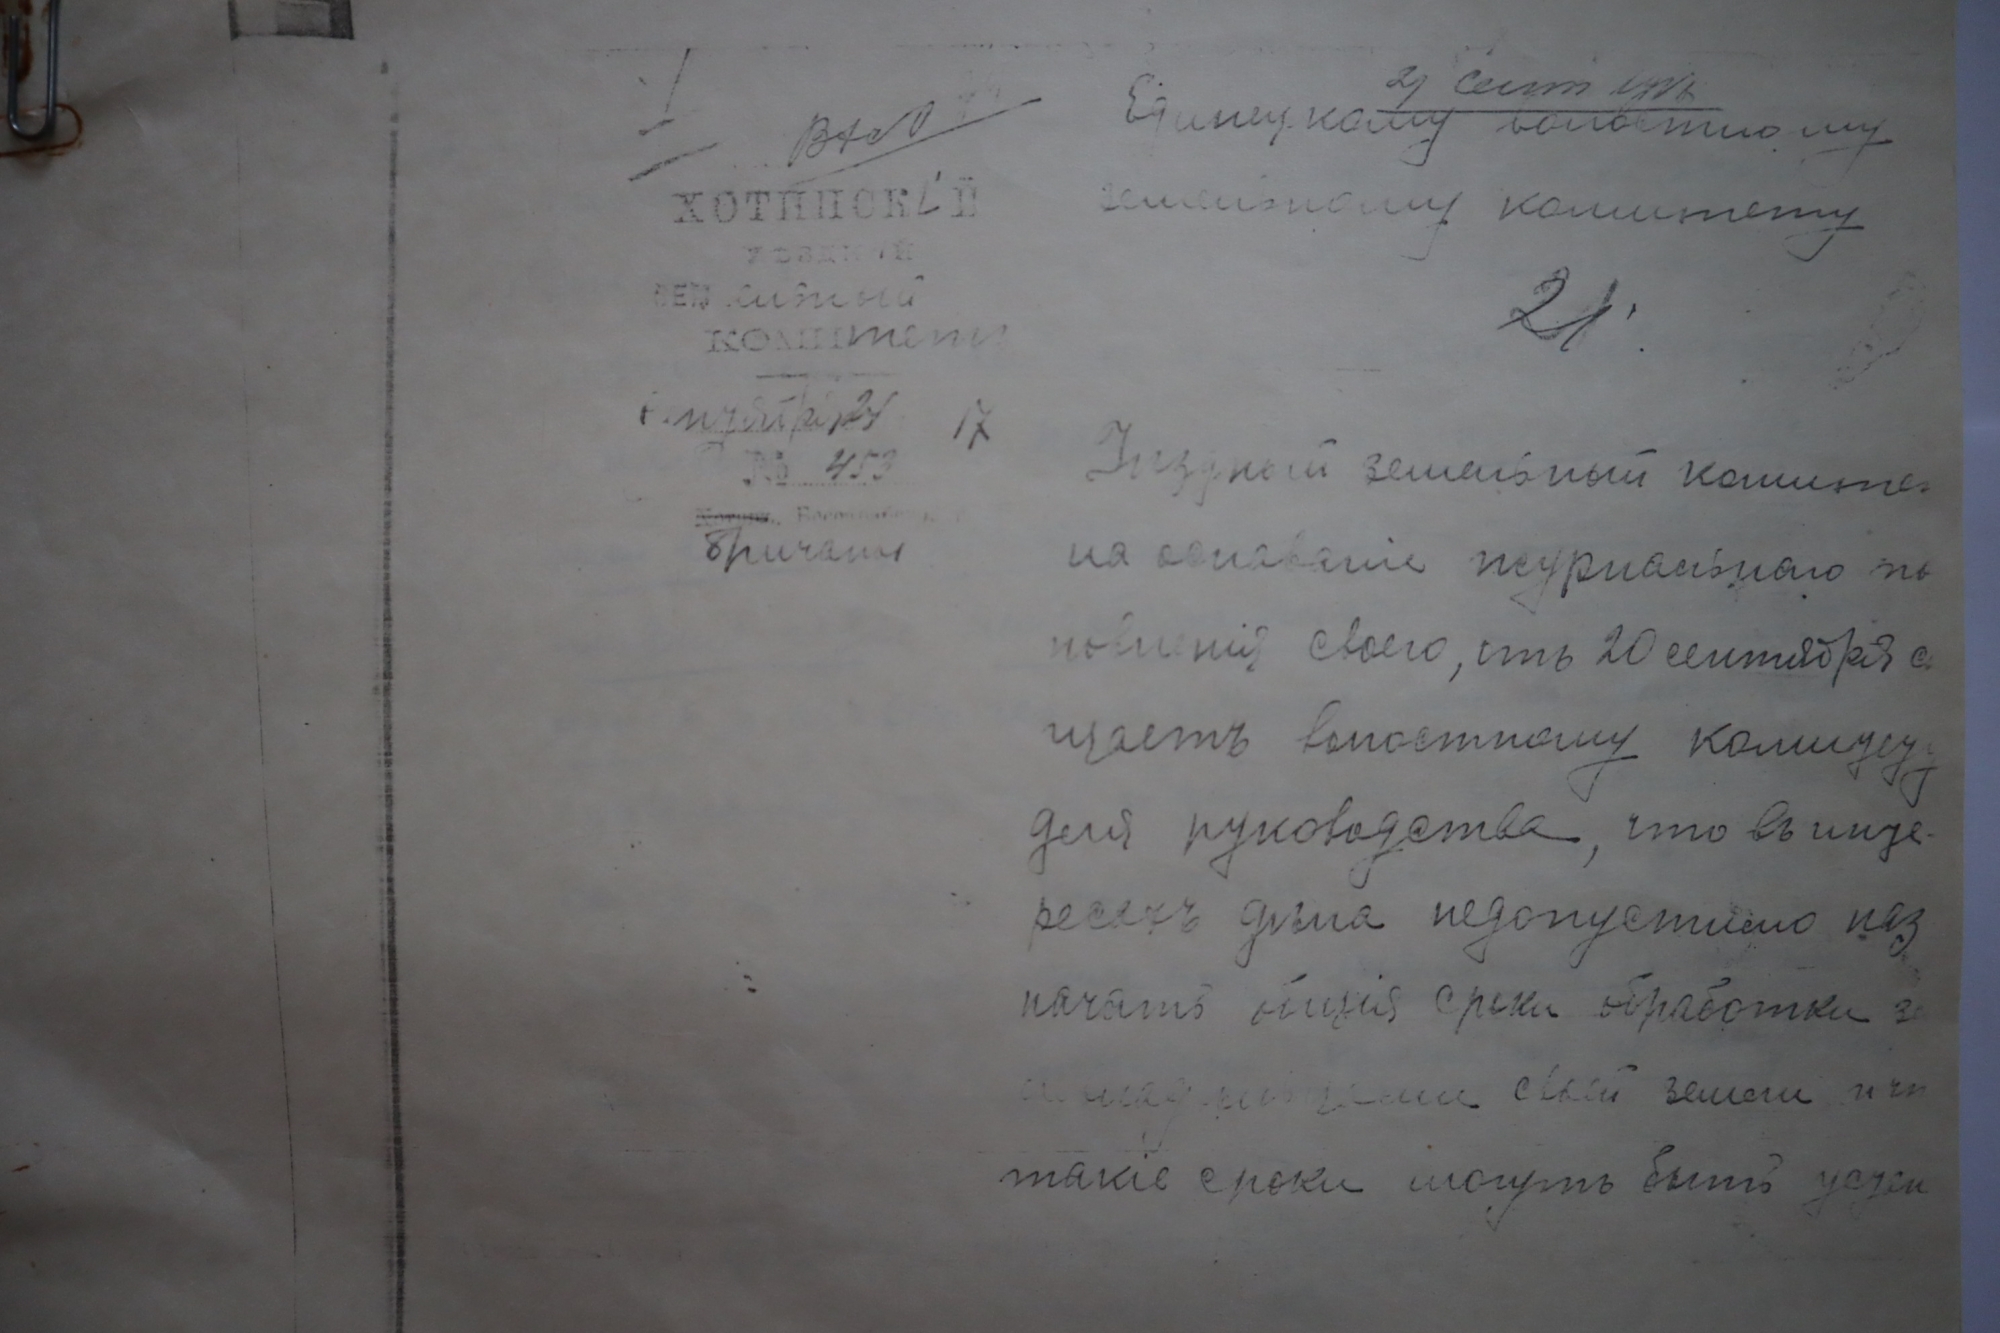 Вх №
ХОТИНСКІЙ
УѢЗДНЫЙ
ЗЕМельный
КОМИтетъ
21
17
№ 453
Хотинъ, Бессарабск.
Бричаны
29 сент
Единецкому волостному
земельному комитету
21.
Уѣздный земельный комите
на основаніе журнальнаго по
новленія своего, отъ 20 сентября с
щаетъ волостному комитету
для руководства, что въ инте-
ресахъ дѣла недопустимо наз
начать общія сроки обработки з
своей земли и что
такіе сроки могутъ быть устан